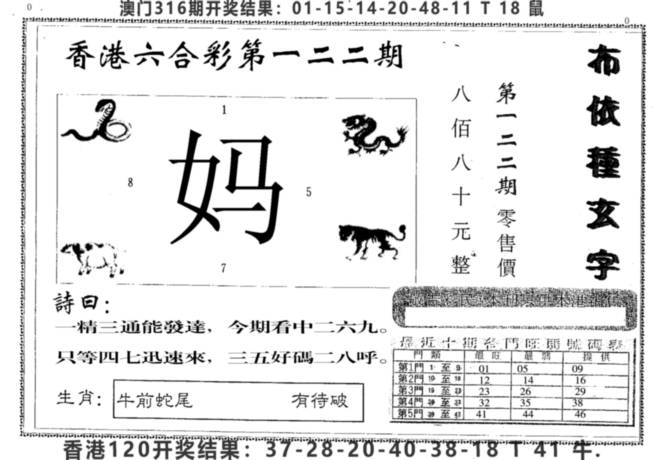 澳门316期开奖结果：01-15-14-20-48-11 T 18 鼠
0
0
香港六合彩第一二二期
1
8
妈
5
7
布依種玄字
第一二二期零售價
八佰八十元整
詩曰：
一精三通能發達，今期看中二六九。
只等四七迅速來，三五好碼二八呼。
生肖：
牛前蛇尾 有待破
最近十期各門旺開號碼表
門類 提供
第1門 至 01 05 09
第2門 至 12 14 16
第3門 至 23 26 29
第4門 至 32 35 38
第5門 至 41 44 46
香港120开奖结果：37-28-20-40-38-18 T 41 牛.